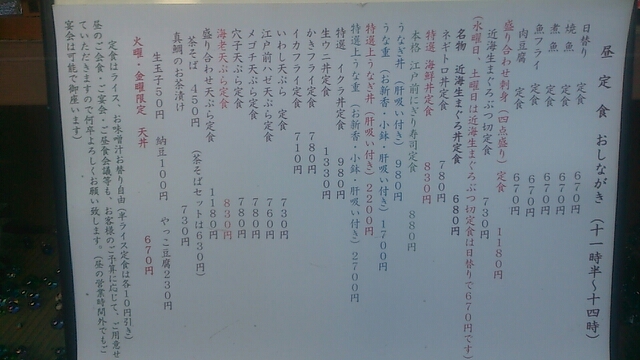 昼定食 おしながき (十一時半～十四時)
日替り 定食 670円
焼魚 定食 670円
煮魚 定食 670円
魚フライ 定食 670円
肉豆腐 定食 670円
盛り合わせ刺身(四点盛り)定食 1180円
近海生まぐろぶつ切定食 730円
(火曜日、土曜日は近海生まぐろぶつ切定食は日替りで670円です)
名物 近海生まぐろ丼定食 680円
ネギトロ丼定食 780円
特選 海鮮丼定食 830円
本格 江戸前にぎり寿司定食 880円
うなぎ丼(肝吸い付き)980円
うな重(お新香・小鉢・肝吸い付き)1700円
特選上うなぎ丼(肝吸い付き)2200円
特選上うな重(お新香・小鉢・肝吸い付き)2700円
特選 イクラ丼定食 980円
生ウニ丼定食 1330円
かきフライ定食 780円
イカフライ定食 710円
いわし天ぷら 定食 730円
江戸前ハゼ天ぷら定食 760円
メゴチ天ぷら定食 780円
穴子天ぷら定食 780円
海老天ぷら定食 830円
盛り合わせ天ぷら定食 1180円
茶そば 450円 (茶そばセットは630円)
真鯛のお茶漬け 730円
生玉子50円 納豆100円 やっこ豆腐230円
火曜・金曜限定 天丼 670円
定食はライス、お味噌汁お替り自由(半ライス定食は各10円引き)
昼のご会食・ご宴会・ご昼食会議等も、お客様のご予算に応じて、ご用意せ
ていただきますので何卒よろしくお願い致します。(昼の営業時間外でもご
宴会は可能で御座います)